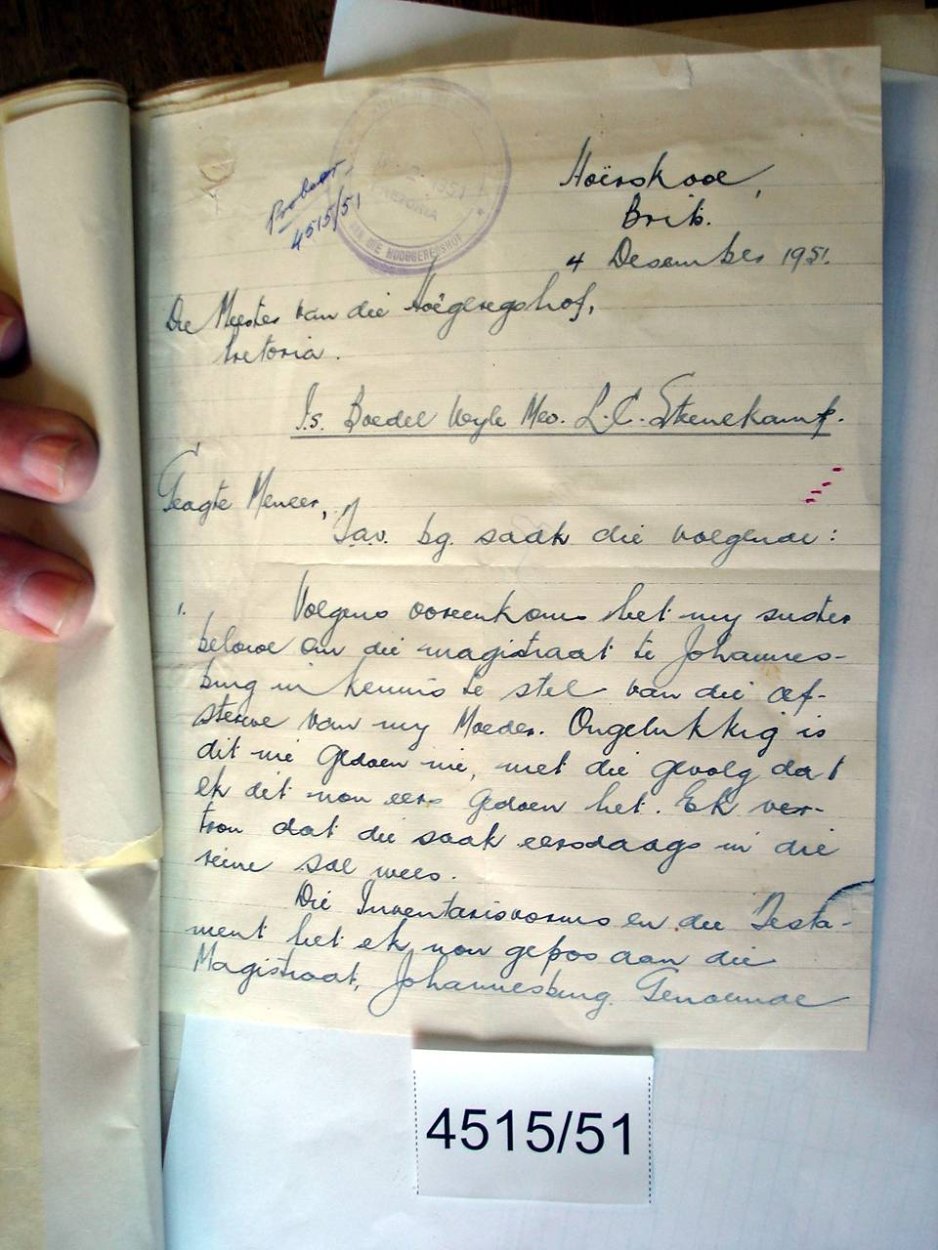 Probeer
4515/51
1951
PRETORIA
VAN DIE HOOGGEREGSHOF
Hoërskool,
Brits.
4 Desember 1951.
Die Meester van die Hoëgeregshof,
Pretoria.
I.s. Boedel Wyle Mev. L.C. Steenekamp.
Geagte Meneer,
I.a.v. bg. saak die volgende:
1. Volgens ooreenkoms het my suster
belowe om die magistraat te Johannes-
burg in kennis te stel van die af-
sterwe van my Moeder. Ongelukkig is
dit nie gedoen nie, met die gevolg dat
ek dit nou eers gedoen het. Ek ver-
trou dat die saak eersdaags in die
reine sal wees.
Die Inventarisvorms en die Testa-
ment het ek nou gepos aan die
Magistraat, Johannesburg. Genoemde
4515/51